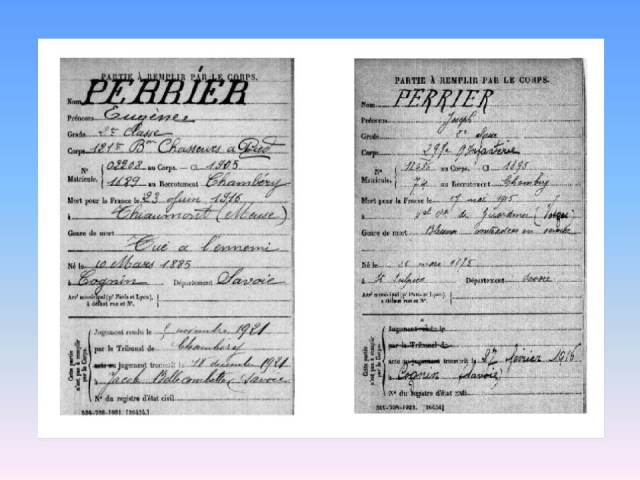 PARTIE À REMPLIR PAR LE CORPS.
Nom PERRIER
Prénoms Eugène
Grade 2e classe
Corps 121e Bon Chasseurs à Pied
N° 02202 au Corps. Cl 1905
Matricule. 1689 au Recrutement Chambéry
Mort pour la France le 23 Juin 1916
à Thiaumont (Meuse)
Genre de mort
Tué à l'ennemi
Né le 10 Mars 1885
à Cognin Département Savoie
Arrt municipal (pr Paris et Lyon),
à défaut rue et N°.
Cette partie n'est pas à remplir par le Corps.
Jugement rendu le 5 novembre 1921
par le Tribunal de Chambéry
acte ou jugement transcrit le 18 décembre 1921
à Jacob Bellecombette (Savoie)
N° du registre d'état civil
534-708-1921. [26434]
PARTIE À REMPLIR PAR LE CORPS.
Nom PERRIER
Prénoms Joseph
Grade
Corps Infanterie
N° au Corps. Cl 1895
Matricule. 74 au Recrutement Chambéry
Mort pour la France le 17 mai
à de Gérardmer (Vosges)
Genre de mort
Né le mars 1875
à St Sulpice Département Savoie
Arrt municipal (pr Paris et Lyon),
à défaut rue et N°.
Cette partie n'est pas à remplir par le Corps.
Jugement rendu le
par le Tribunal de
acte ou jugement transcrit le 27 février 1916
à Cognin (Savoie)
N° du registre d'état civil
534-708-1921. [26434]